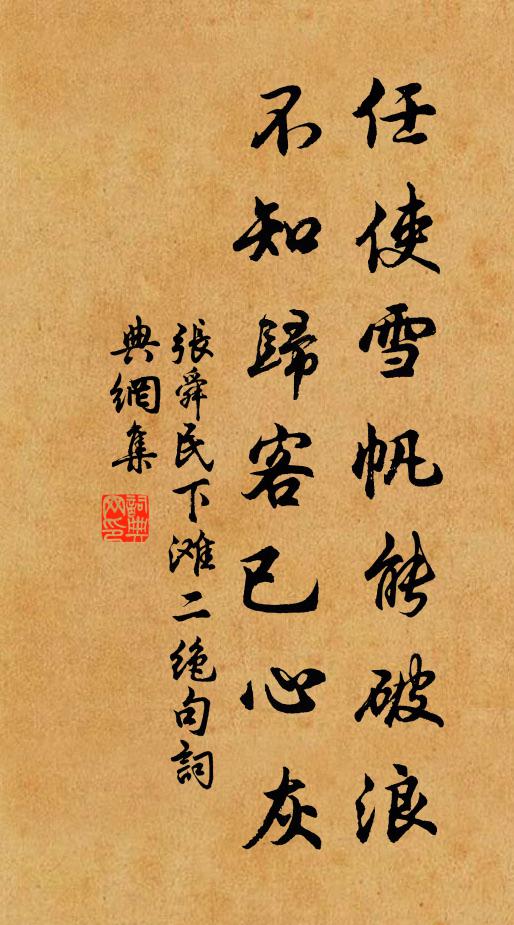 任使雪帆能破浪
不知歸客已心灰
張舜民下滩二绝句詞
典網集
詞典
网印